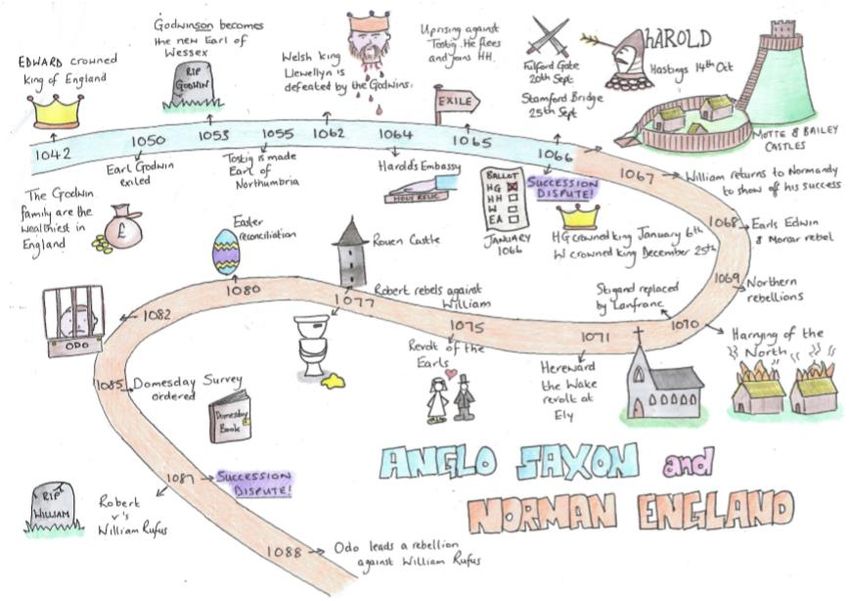 EDWARD crowned
king of England
1042
The Godwin
family are the
wealthiest in
England
£
1050
Earl Godwin
exiled
Godwinson becomes
the new Earl of
Wessex
RIP
GODWIN
1053
1055
Tostig is made
Earl of
Northumbria
Welsh king
Llewellyn is
defeated by the Godwins.
1062
1064
Harold's Embassy
HOLY RELIC
Uprising against
Tostig. He flees
and joins HH.
EXILE
1065
Fulford Gate
20th Sept
Stamford Bridge
25th Sept
HAROLD
Hastings 14th Oct
MOTTE & BAILEY
CASTLES
1066
SUCCESSION
DISPUTE!
BALLOT
HG
HH
W
EA
JANUARY
1066
HG crowned king January 6th
W crowned king December 25th
1067
William returns to Normandy
to show of his success
1068
Earls Edwin
& Morcar rebel
1069
Northern
rebellions
1070
Stigand replaced
by Lanfranc
Harrying of the
North
1071
Hereward
the Wake
revolt at
Ely
1075
Revolt of the
Earls
1077
Robert rebels against
William
Rouen Castle
1080
Easter
reconciliation
1082
ODO
1085
Domesday Survey
ordered
Domesday
Book
1087
SUCCESSION
DISPUTE!
RIP
WILLIAM
Robert
v's
William Rufus
1088
Odo leads a rebellion
against William Rufus
ANGLO SAXON and
NORMAN ENGLAND